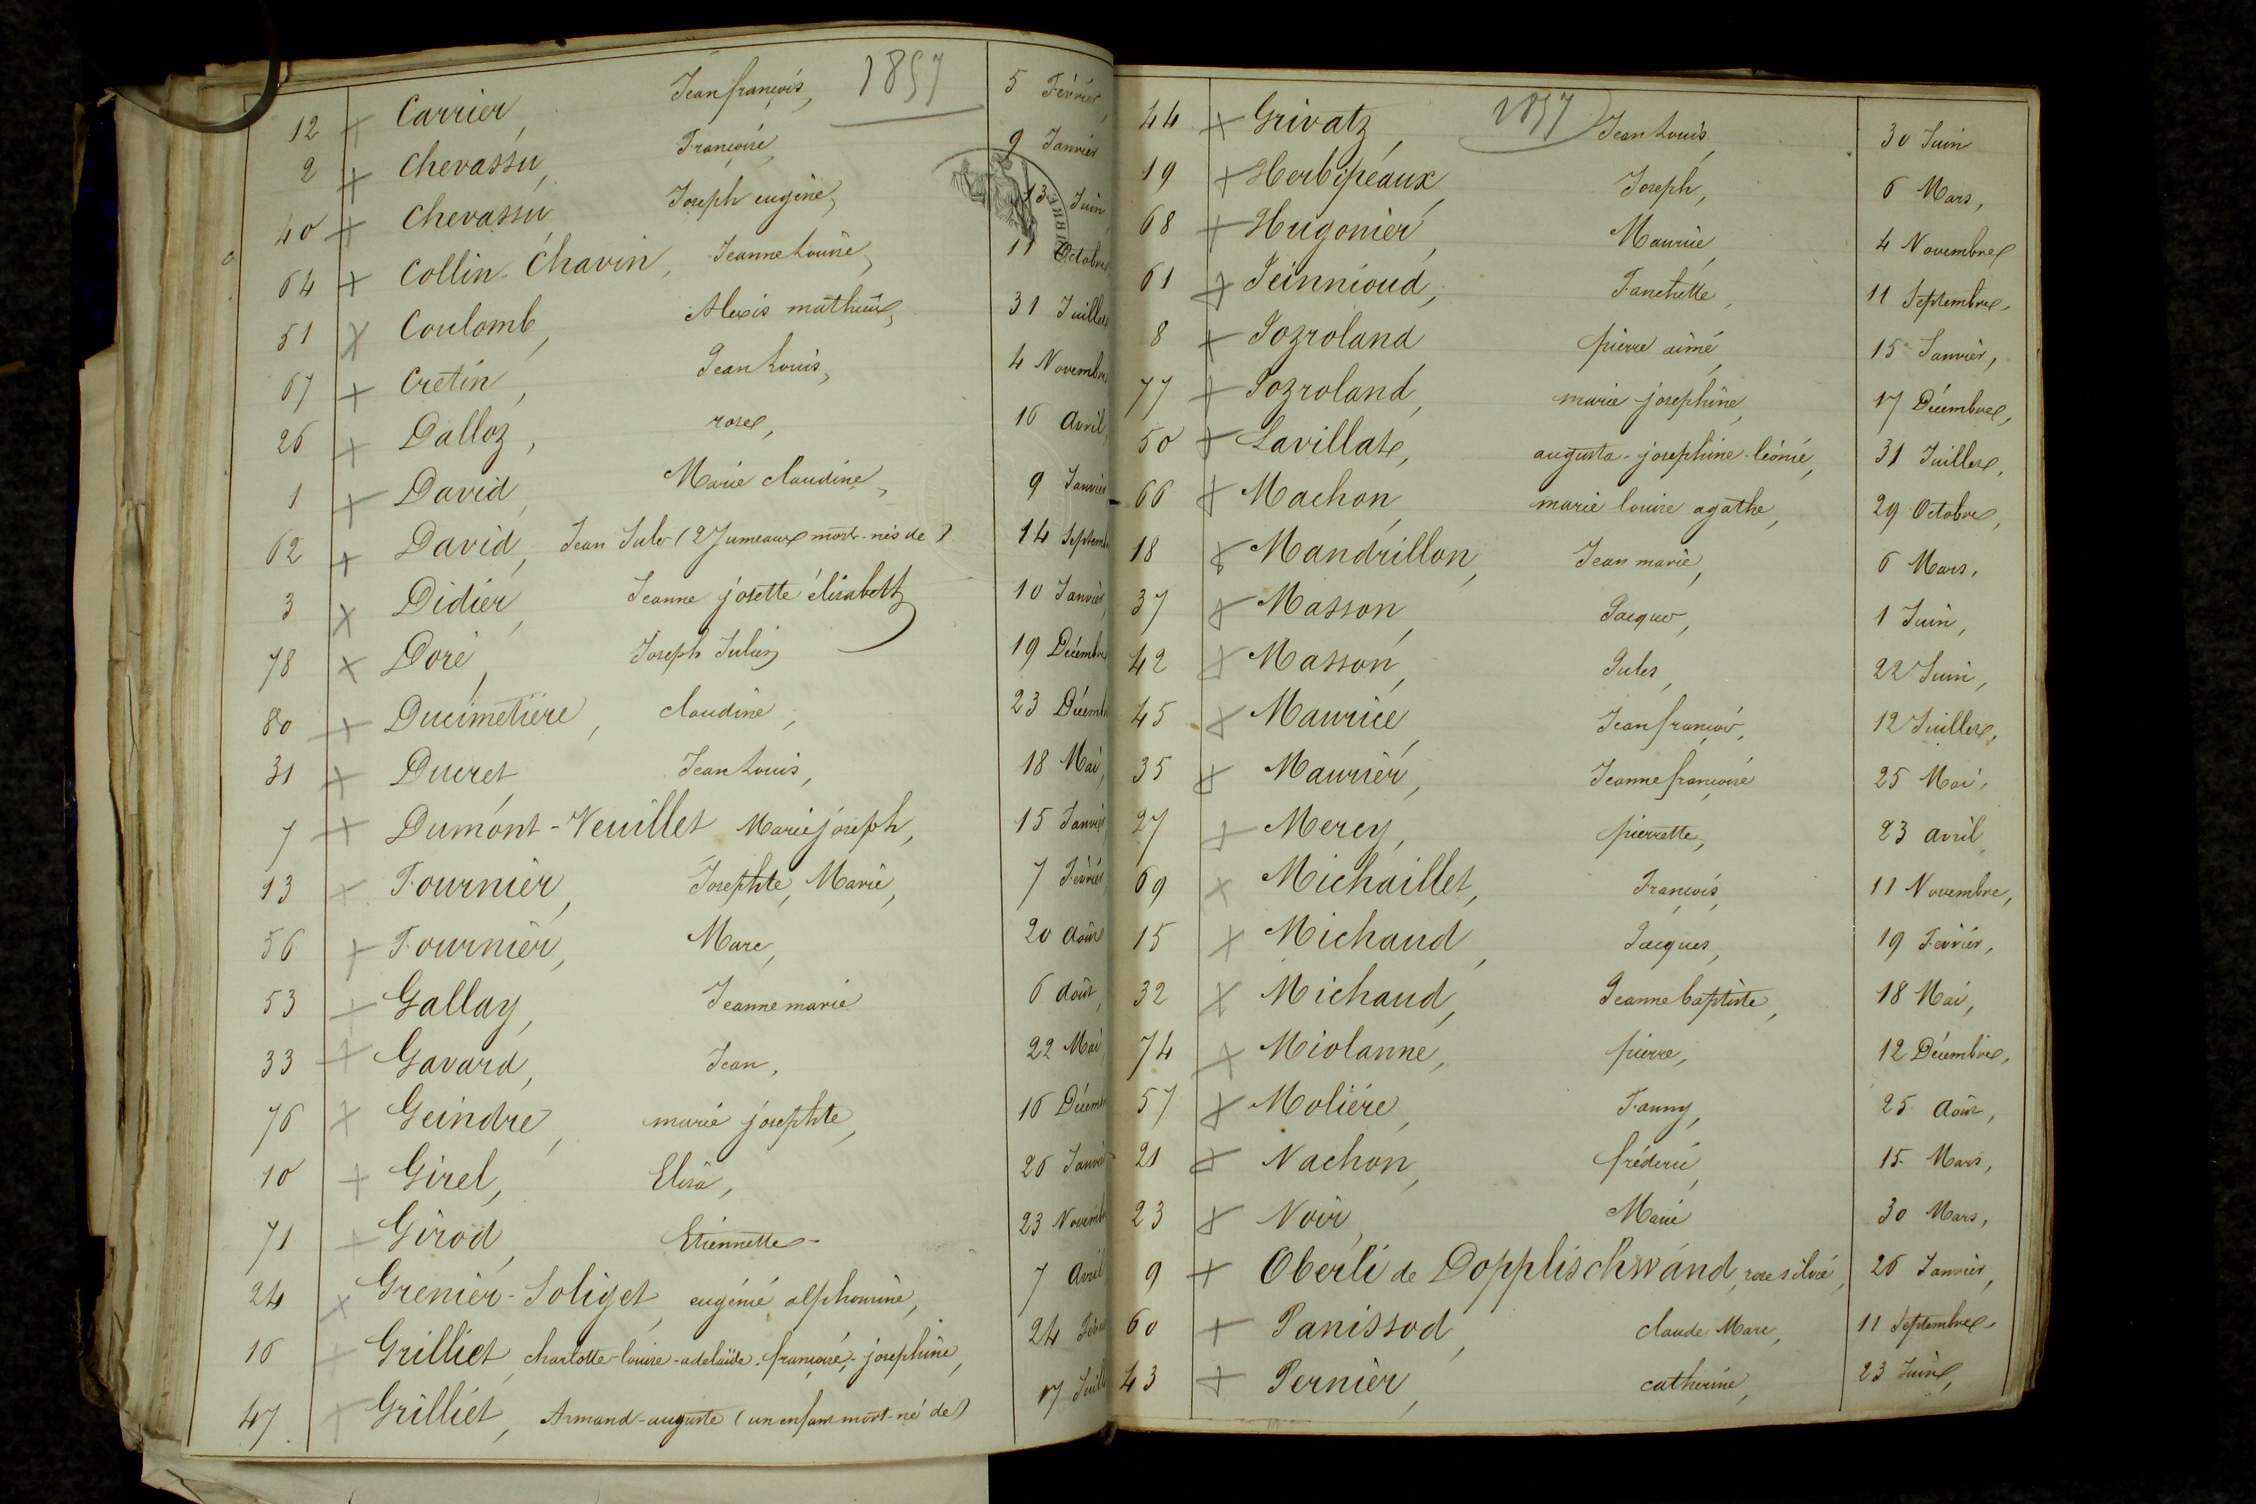 1857
12 Carrier, Jean françois, 5 Février,
2 Chevassu, Françoise, 9 Janvier
40 Chevassu, Joseph eugène, 13 Juin
64 Collin-Chavin, Jeanne Louise, 11 Octobre
51 Coulomb, Alexis mathieu, 31 Juillet
67 Cretin, Jean Louis, 4 Novembre
26 Dalloz, rose, 16 Avril,
1 David, Marie claudine, 9 Janvier
62 David, Jean Jules (2 Jumeaux mort-nés de) 14 Septemb
3 Didier, Jeanne josette élisabeth 10 Janvier,
78 Doré, Joseph Julien 19 Décembre
80 Ducimetière, claudine, 23 Décemb
31 Ducret, Jean Louis, 18 Mai,
7 Dumont-Veuillet Marie joseph, 15 Janvier
13 Fournier, Josephte, Marie, 7 Février
56 Fournier, Marc, 20 Août
53 Gallay, Jeanne marie 6 Août,
33 Gavard, Jean, 22 Mai,
76 Geindre, marie josephte, 16 Décemb
10 Girel, Elisa, 26 Janvi
71 Girod, Etiennette 23 Novemb
24 Grenier-Soliget, eugénie alphonsine, 7 Avril
16 Grilliet, charlotte-louise-adelaïde-françoise-josephine, 24 Févr
47 Grilliet, Armand-auguste (un enfant mort-né de) 17 Juill
1857
44 Grivatz, Jean Louis, 30 Juin
19 Herbepéaux, Joseph, 6 Mars,
68 Hugonier, Maurice, 4 Novembre
61 Jeinnioud, Fanchette, 11 Septembre,
8 Jozroland pierre aimé, 15 Janvier,
77 Jozroland, marie josephine, 17 Décembre,
50 Lavillate, augusta-josephine-léonie, 31 Juillet,
66 Machon, marie louise agathe, 29 Octobre,
18 Mandrillon, Jean marie, 6 Mars,
37 Masson, Jacques, 1 Juin,
42 Masson, Jules, 22 Juin,
45 Maurice, Jean françois, 12 Juillet,
35 Maurier, Jeanne françoise 25 Mai,
27 Mercy, pierrette, 23 avril,
69 Michaillet, François, 11 Novembre,
15 Michaud, Jacques, 19 Février,
32 Michaud, Jeanne baptiste, 18 Mai,
74 Miolanne, pierre, 12 Décembre,
57 Molière, Fanny, 25 Août,
21 Nachon, fréderic, 15 Mars,
23 Noir, Marie 30 Mars,
9 Oberli de Dopplischwand, rose silvie, 26 Janvier,
60 Panissod, claude Marc, 11 Septembre,
43 Pernier, catherine, 23 Juin,